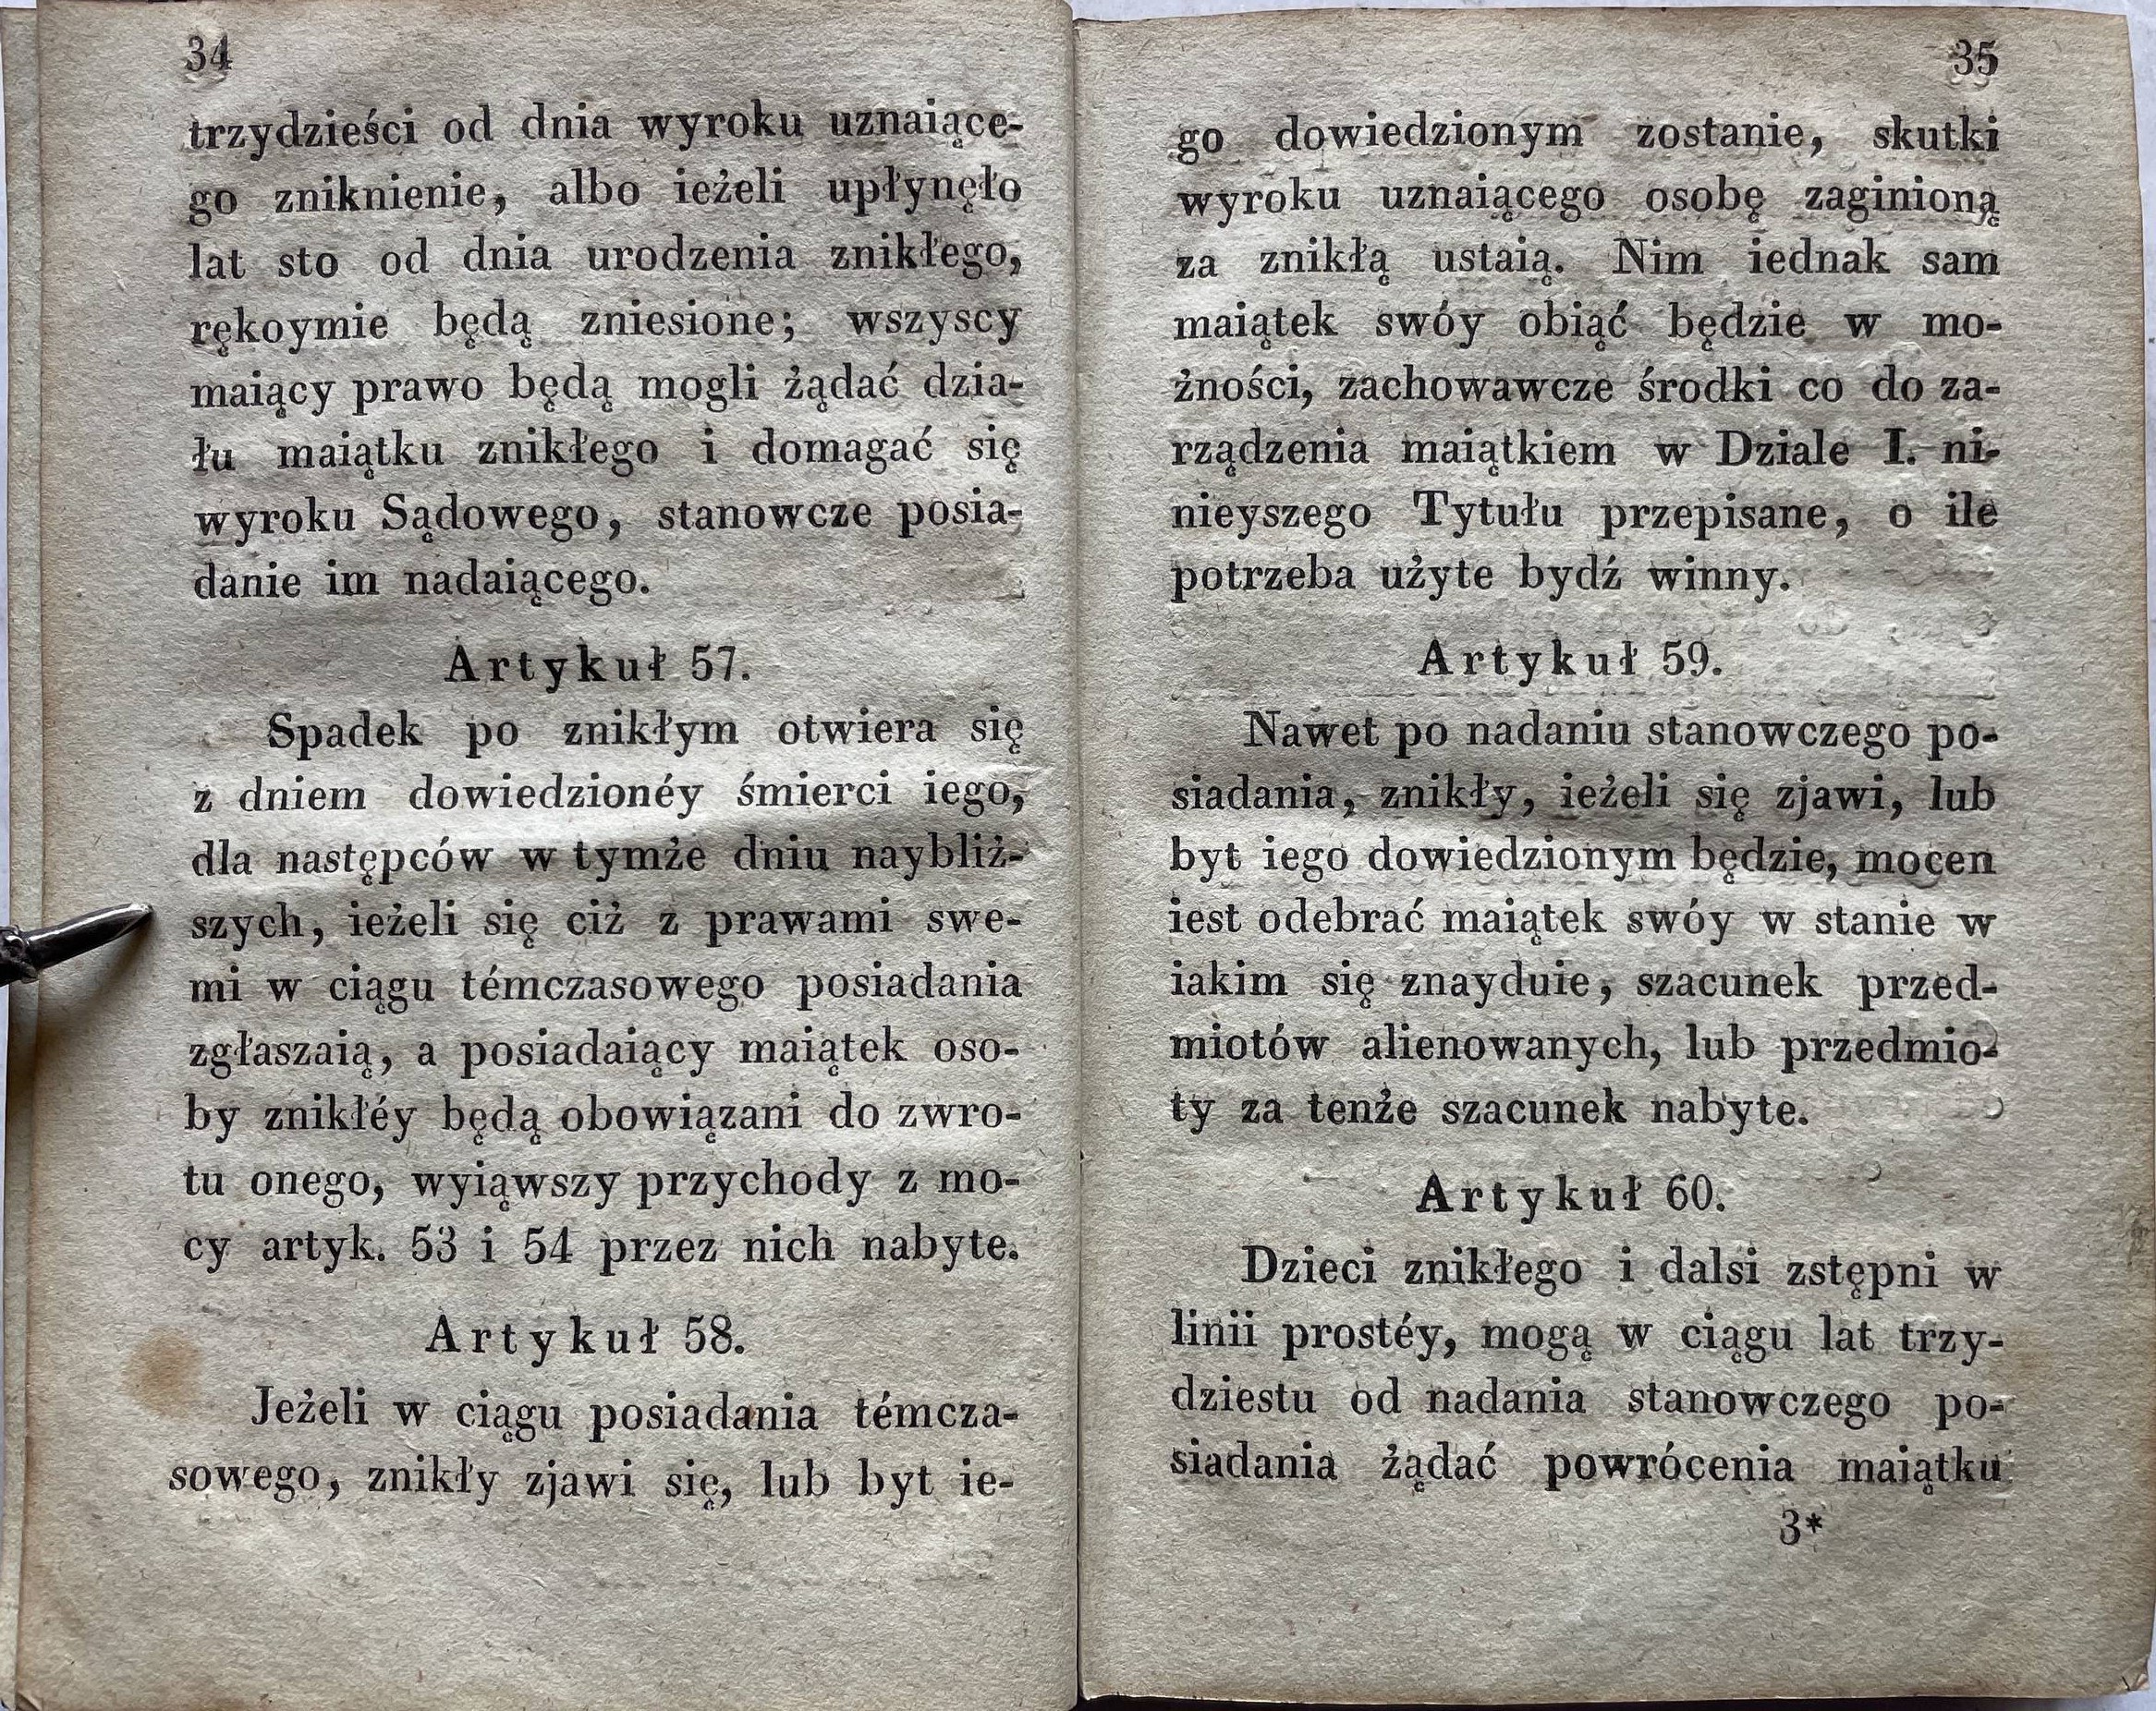 34
trzydzieści od dnia wyroku uznaiące-
go zniknienie, albo ieżeli upłynęło
lat sto od dnia urodzenia znikłego,
rękoymie będą zniesione; wszyscy
maiący prawo będą mogli żądać dzia-
łu maiątku znikłego i domagać się
wyroku Sądowego, stanowcze posia-
danie im nadaiącego.
Artykuł 57.
Spadek po znikłym otwiera się
z dniem dowiedzionéy śmierci iego,
dla następców w tymże dniu naybliż-
szych, ieżeli się ciż z prawami swe-
mi w ciągu témczasowego posiadania
zgłaszaią, a posiadaiący maiątek oso-
by znikłéy będą obowiązani do zwro-
tu onego, wyiąwszy przychody z mo-
cy artyk. 53 i 54 przez nich nabyte.
Artykuł 58.
Jeżeli w ciągu posiadania témcza-
sowego, znikły zjawi się, lub byt ie-
35
go dowiedzionym zostanie, skutki
wyroku uznaiącego osobę zaginioną
za znikłą ustaią. Nim iednak sam
maiątek swóy obiąć będzie w mo-
żności, zachowawcze środki co do za-
rządzenia maiątkiem w Dziale I. ni-
nieyszego Tytułu przepisane, o ile
potrzeba użyte bydź winny.
Artykuł 59.
Nawet po nadaniu stanowczego po-
siadania, znikły, ieżeli się zjawi, lub
byt iego dowiedzionym będzie, mocen
iest odebrać maiątek swóy w stanie w
iakim się znayduie, szacunek przed-
miotów alienowanych, lub przedmio-
ty za tenże szacunek nabyte.
Artykuł 60.
Dzieci znikłego i dalsi zstępni w
linii prostéy, mogą w ciągu lat trzy-
dziestu od nadania stanowczego po-
siadania żądać powrócenia maiątku
3*